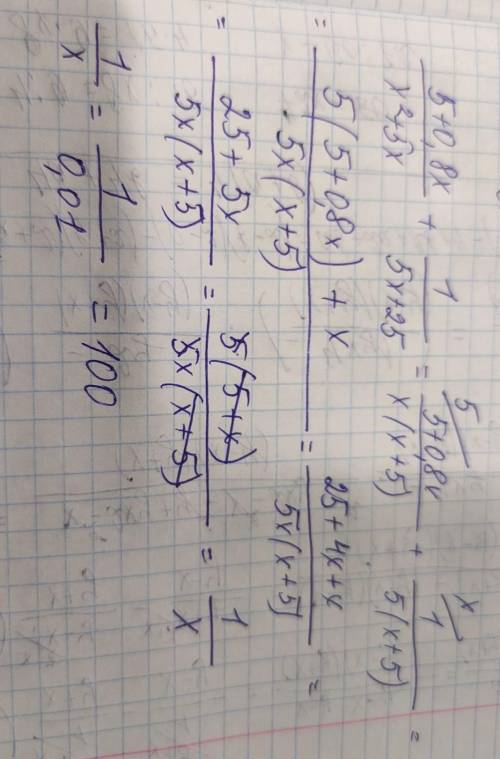 (5+0,8x)/(x²+5x) + 1/(5x+25) = 5/ (5+0,8x)/(x(x+5)) + x/ 1/(5(x+5)) =
= (5(5+0,8x) + x)/(5x(x+5)) = (25+4x+x)/(5x(x+5)) =
= (25+5x)/(5x(x+5)) = (5(5+x))/(5x(x+5)) = 1/x
1/x = 1/0,01 = 100